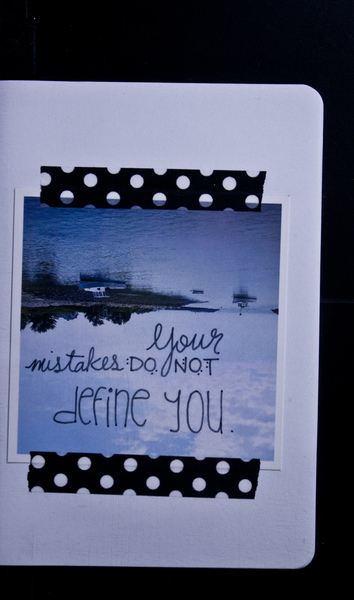 Your
mistakes DO NOT
define YOU.